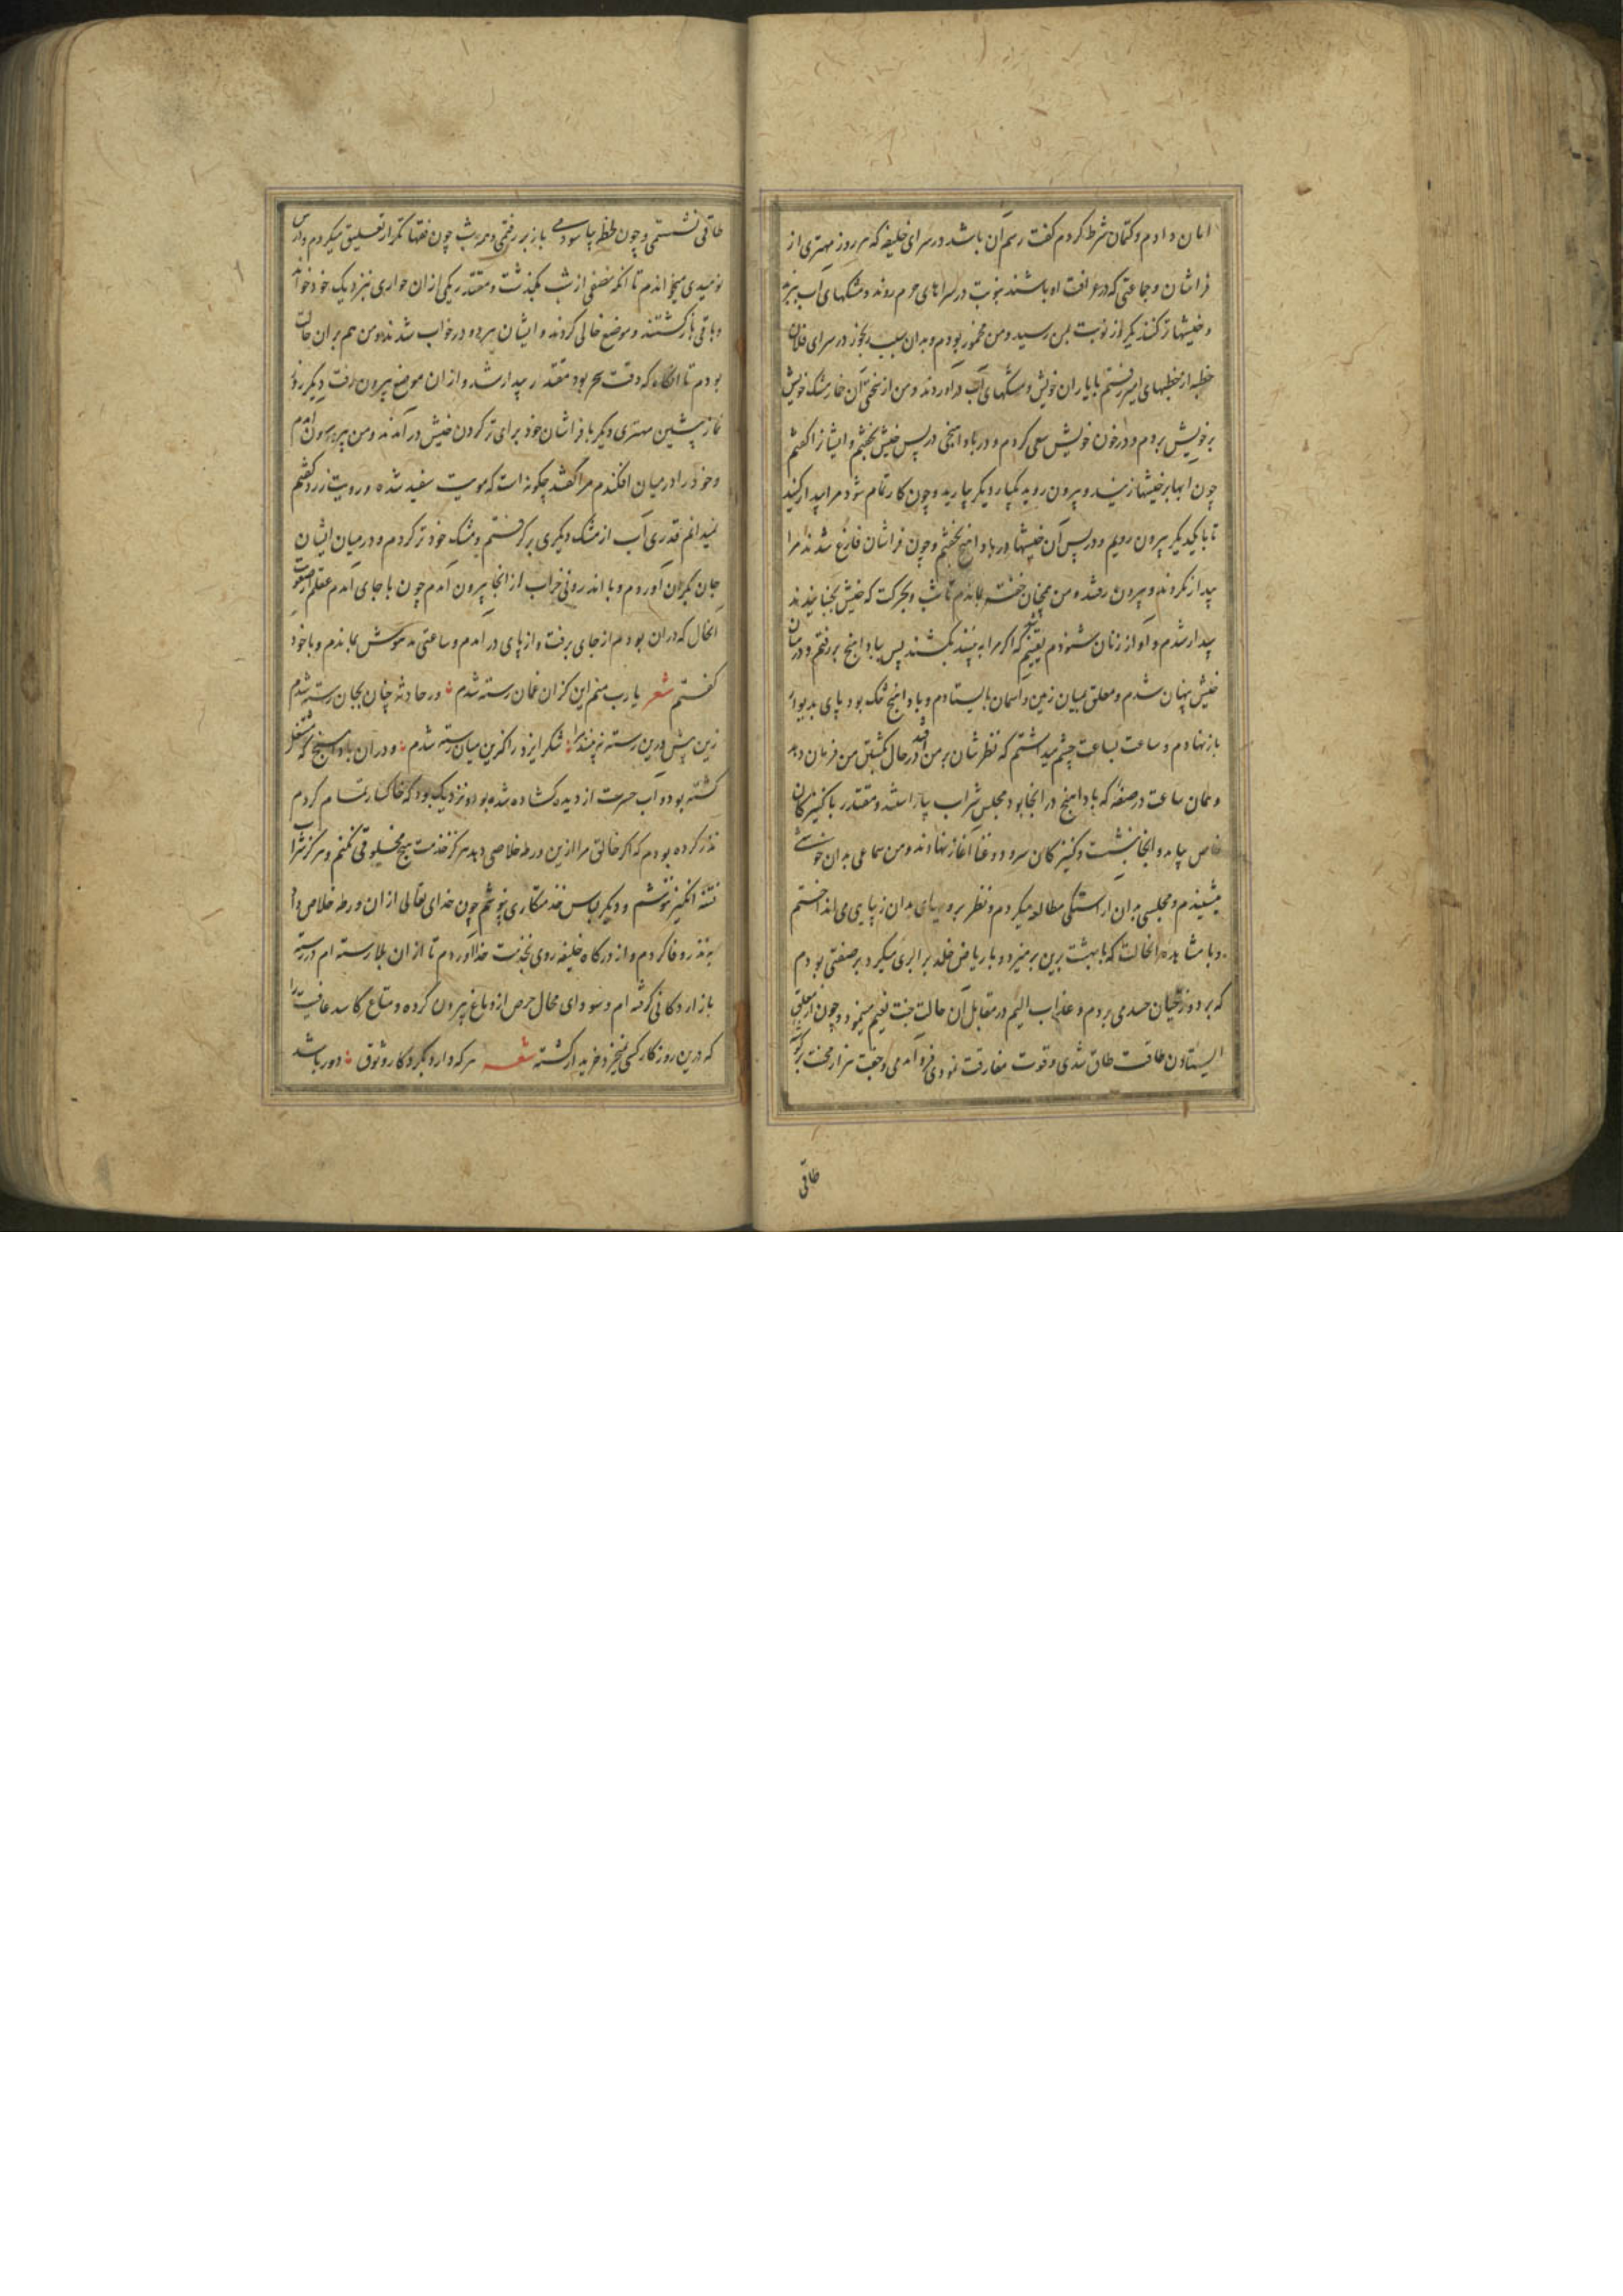 امان دادم و کتمان شرط کردم گفت رسم آن باشد در سرای خلیفه که هر روز مهتری از
فراشان و جماعتی که در عرافت او باشند بنوبت در سراهای حرم روند و مشکهای آب ببرند
و خیشها تر کنند یکروز نوبت بمن رسید و من مخمور بودم و بدان سبب رنجور در سرای فلان
خطیه از خطیهای امیر رفتم با یاران خویش و مشکهای آب در آوردند و من از سختی آن خمار مشک خویش
بر خویش بردم و در خون خویش سعی کردم و در بادآهنجی در پس خیش بخفتم و ایشانرا گفتم
چون آبها بر خیشها زنید و بیرون روید یکبار دیگر بیارید و چون کار تمام شود مرا بیدار کنید
تا با یکدیگر بیرون رویم و در پس آن خیشها در بادآهنج بخفتم و چون فراشان فارغ شدند مرا
بیدار نکردند و بیرون رفتند و من همچنان خفته بماندم تا شب و بحرکت که خیش بجنبانیدند
بیدار شدم و آواز زنان شنودم یقینم شد که اگر مرا به بینند بکشند پس ببادآهنج بررفتم و در میان
خیش پنهان شدم و معلق میان زمین و آسمان بایستادم و بادآهنج تنک بود پای بدیوار
باز نهادم و ساعت بساعت چشم میداشتم که نظرشان بر من افتد در حال کشتن من فرمان دهد
و همان ساعت در صفه که بادآهنج در آنجا بود مجلس شراب بیاراستند و مقتدر با کنیزکان
خاص بیامد و آنجا بنشست و کنیزکان سرود و غنا آغاز نهادند و من سماعی بدان خوشی
میشنیدم و مجلسی بدان آراستگی مطالعه میکردم و نظر بر رویهای بدان زیبایی می انداختم
و با مشاهده آنحالت که با بهشت برین برمیزد و با ریاض خلد برابری میکرد بر صفتی بودم
که بر دوزخیان حسد می بردم و عذاب الیم در مقابل آن حالت جنت نعیم مینمود و چون از معلق
ایستادن طاقت طاق شدی و قوت مفارقت نمودی فرو آمدمی و جفت هزار محنت بر گوشه
طاقی
طاقی نشستمی و چون لحظه بیاسودمی باز بر رفتمی و همه شب چون فقها تکرار تعلیق میکردم و درس
نومیدی میخواندم تا آنکه نصفی از شب بگذشت و مقتدر یکی از ان جواری بنزدیک خود خواند
و باقی باز گشتند و موضع خالی کردند و ایشان هر دو در خواب شدند و من هم بران حالت
بودم تا آنگاه که وقت سحر بود مقتدر بیدار شد و از ان موضع بیرون رفت دیگر روز
نماز پیشین مهتری دیگر با فراشان خود برای تر کردن خیش در آمدند و من بیرون آمدم
و خود را در میان افکندم مرا گفتند چگونه است که مویت سفید شده و رویت زرد گفتم
نمیدانم قدری آب از مشک دیگری بر گرفتم و مشک خود تر کردم و در میان ایشان
جان بکران آوردم و با اندرونی خراب از آنجا بیرون آمدم چون با جای آمدم عقلم از صعوبت
آنحال که در ان بودم از جای برفت و از پای در آمدم و ساعتی مدهوش بماندم و با خود
گفتم شعر یا رب منم این کزان غمان رسته شدم ؞ ور حادثه چنان بجان رسته شدم
زین پیش درین رسته نه بینند مرا ؞ شکر ایزد را کزین میان رسته شدم ؞ و در ان بادآهنج که مستغل
گشته بود و آب حسرت از دیده گشاده شده بود و نزدیک بود که خاکسار تمام گردم
نذر کرده بودم که اگر خالق مرا ازین ورطه خلاصی دهد هرگز خدمت هیچ مخلوقی نکنم و هرگز شراب
فتنه انگیز ننوشم و دیگر لباس خدمتکاری نپوشم چون خدای تعالی از ان ورطه خلاص داد
به نذر وفا کردم و از درگاه خلیفه روی بخدمت خدا آوردم تا از ان بلا رسته ام در رسته
بازار دکانی گرفته ام و سودای محال حرص از دماغ بیرون کرده و متاع کاسد عافیت را
که درین روزگار کسی نمیخرد خریدار گشته شعر هر که دارد بکردگار وثوق ؞ دور باشد